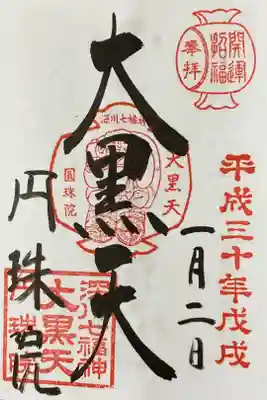 奉拝
開運
招福
平成三十年戊戌
一月二日
大黒天
深川七福神
大黒天
圓珠院
円珠院
深川七福神
大黒天